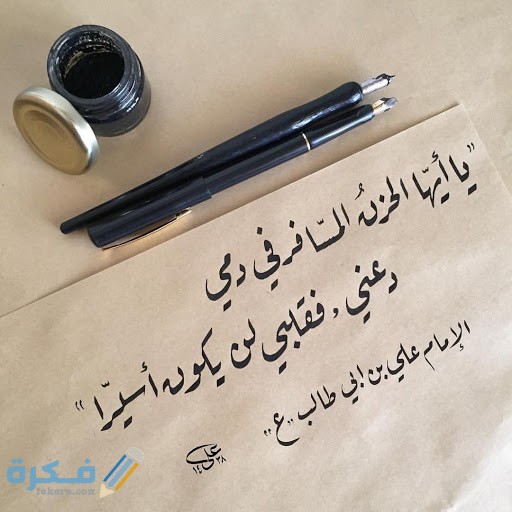 "يا أيها الحزنُ المسافر في دمي
دعني، فقلبي لن يكون أسيرًا"
الإمام علي بن ابي طالب "ع"
علي
١٤٣٨
فكرة
fekera.com